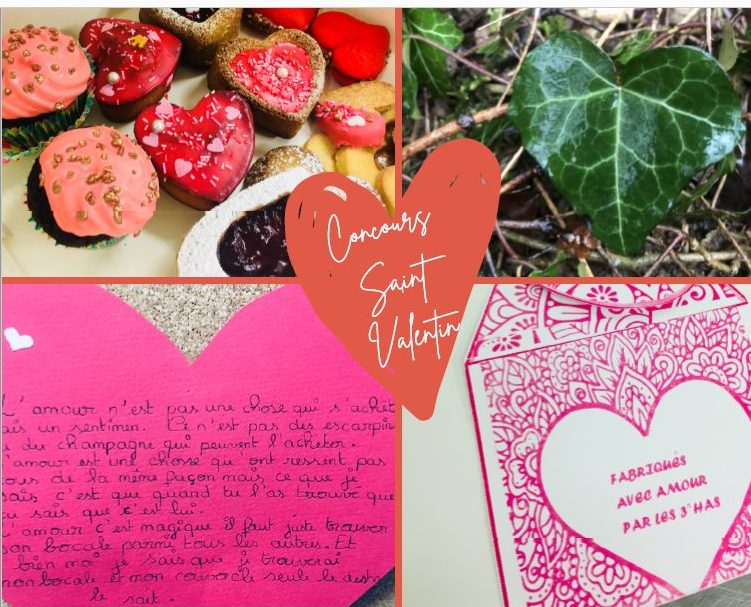 Concours
Saint
Valentin
L'amour n'est pas une chose qui s'achèt
ais un sentimen. Ce n'est pas des escarpin
du champagne qui peuvent l'acheter.
'amour est une chose qu'ont ressent pas
ous de la même façon mais ce que je
sais c'est que quand tu l'as trouvé que
tu sais que c'est lui.
L'amour c'est magique il faut juste trouver
son bocale parmi tous les autres. Et
bien moi je sais que je trouverai
mon bocale et mon couvercle seule le destin
le sait.
FABRIQUÉS
AVEC AMOUR
PAR LES 3°HAS